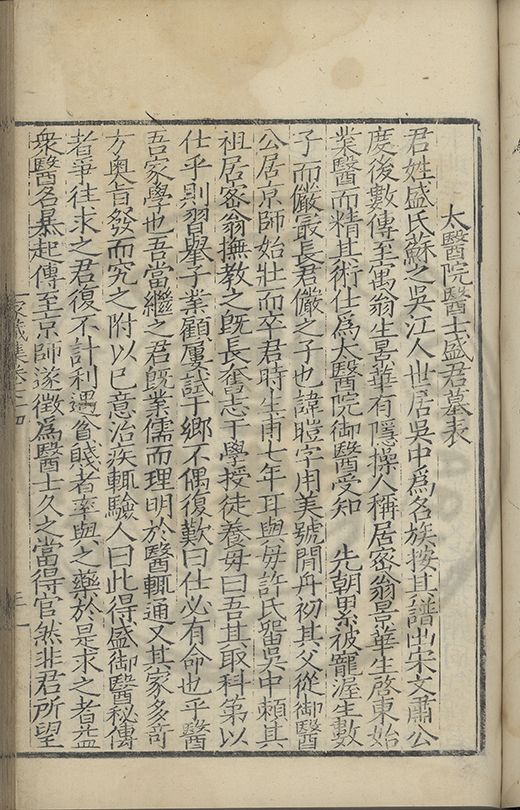 太醫院醫士盛君墓表
君姓盛氏蘇之吳江人世居吳中爲名族按其譜出宋文肅公
度後數傳至寓翁生景華有隱操人稱居密翁景華生啓東始
業醫而精其術仕爲太醫院御醫受知 先朝累被寵渥生數
子而儼最長君儼之子也諱暟字用美號閒舟初其父從御醫
公居京師始壯而卒君時生甫七年耳與母許氏畱吳中賴其
祖居密翁撫教之旣長奮志于學授徒養母曰吾其取科第以
仕乎則習舉子業顧屢試于鄉不偶復歎曰仕必有命也乎醫
吾家學也吾當繼之君旣業儒而理明於醫輒通又其家多奇
方奧旨發而究之附以已意治疾輒驗人曰此得盛御醫秘傳
者爭往求之君復不計利遇貧賤者率與之藥於是求之者益
衆醫名暴起傳至京師遂徴爲醫士久之當得官然非君所望
家藏集卷七十四